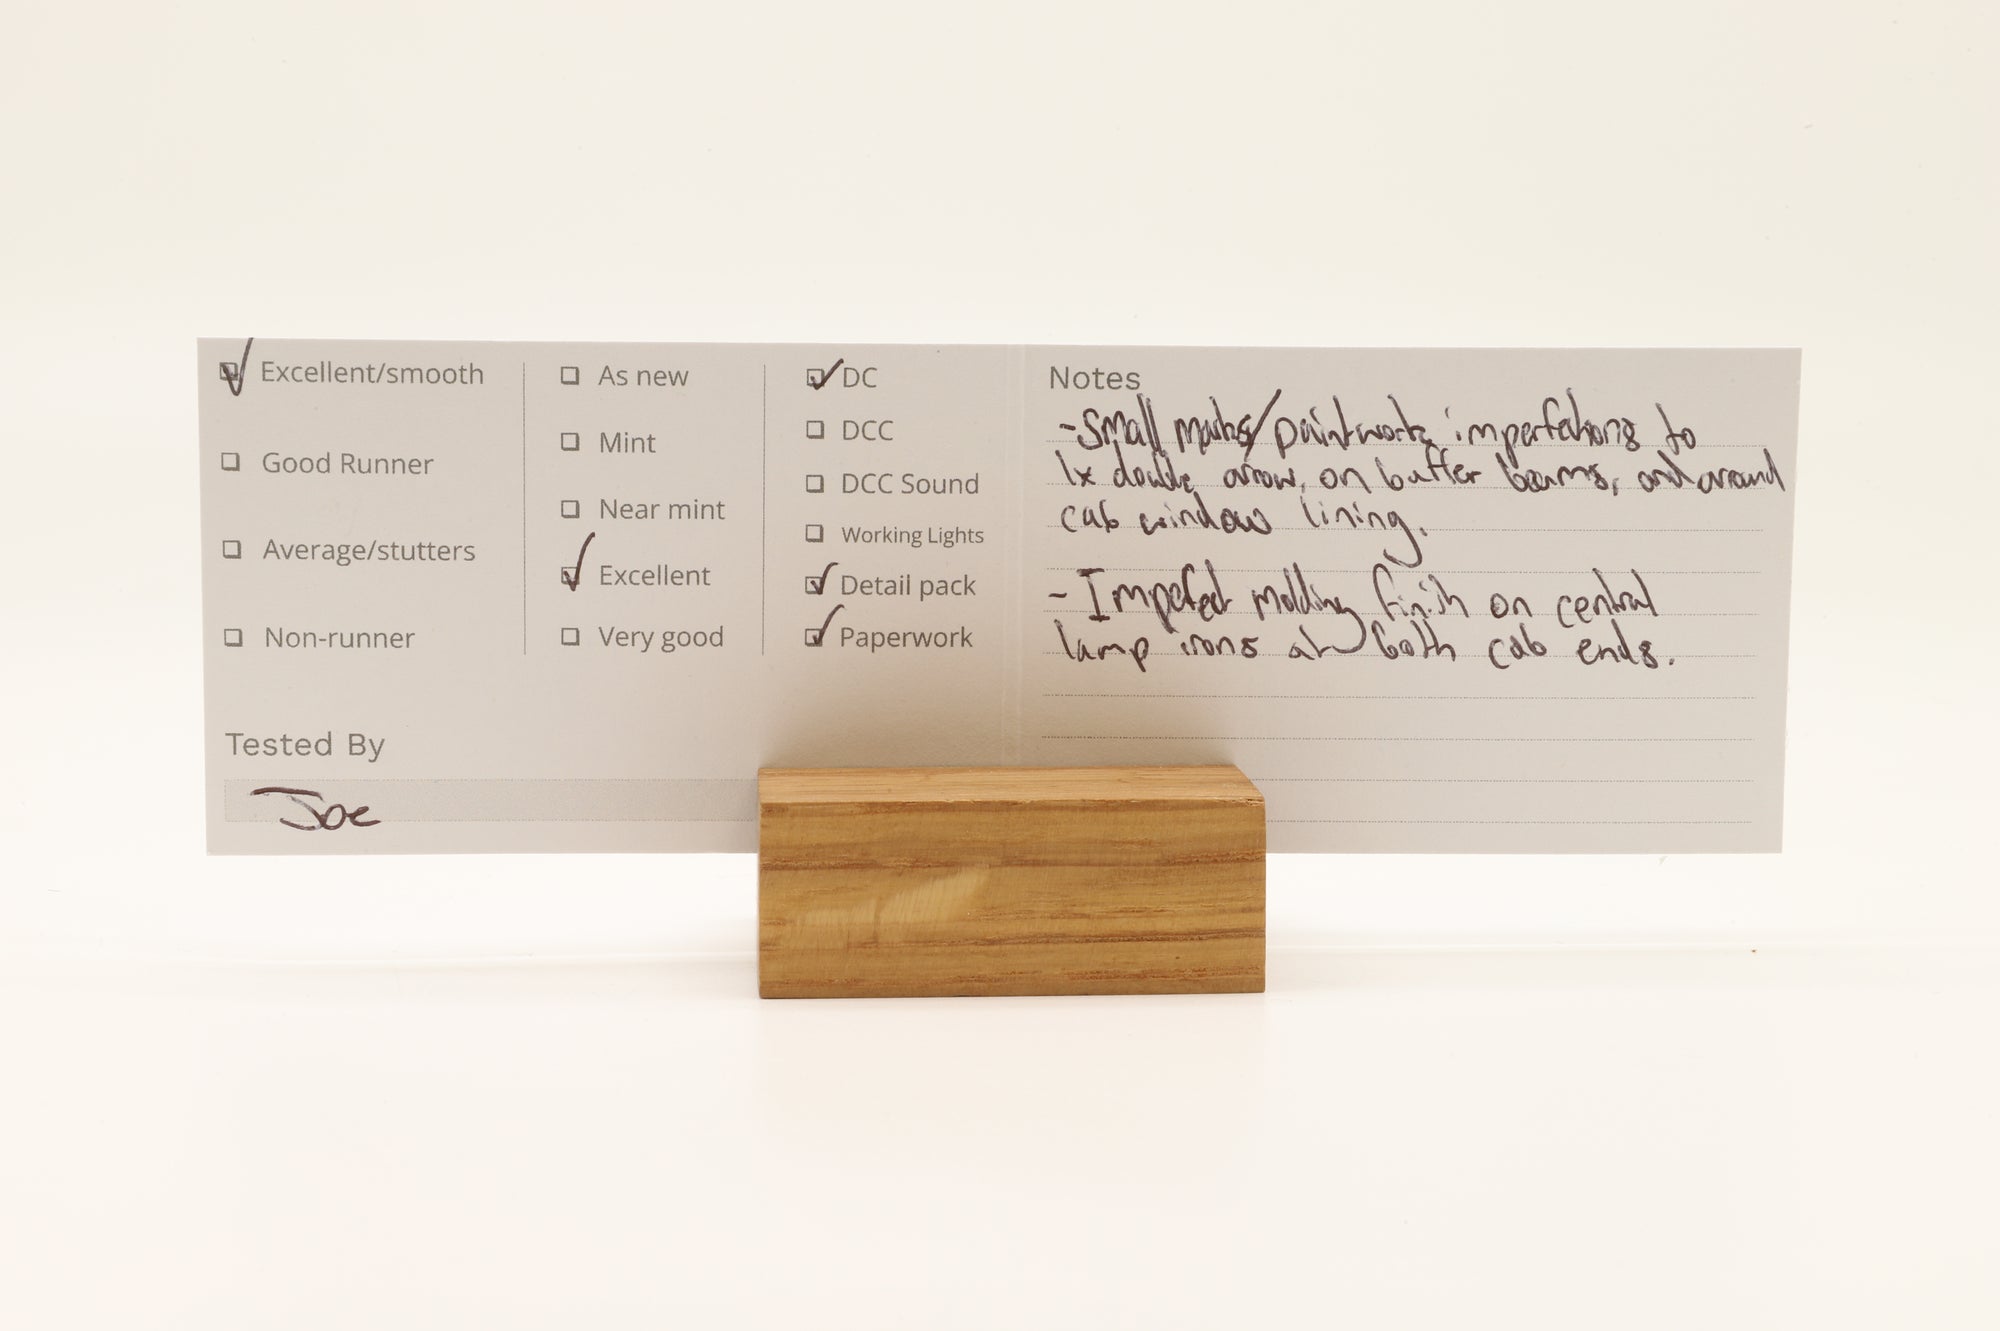 Excellent/smooth
Good Runner
Average/stutters
Non-runner
As new
Mint
Near mint
Excellent
Very good
DC
DCC
DCC Sound
Working Lights
Detail pack
Paperwork
Tested By
Joe
Notes
- Small marks/paintwork imperfections to
1x double arrow, on buffer beams, and around
cab window lining.
- Imperfect molding finish on central
lamp irons at both cab ends.